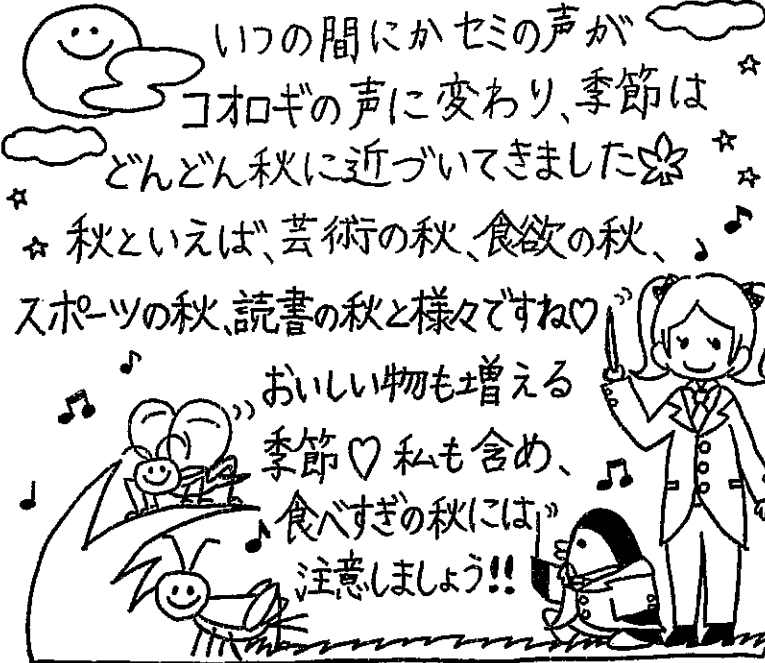 いつの間にかセミの声が
コオロギの声に変わり、季節は
どんどん秋に近づいてきました
秋といえば、芸術の秋、食欲の秋、
スポーツの秋、読書の秋と様々ですね♡
おいしい物も増える
季節♡私も含め、
食べすぎの秋には
注意しましょう!!